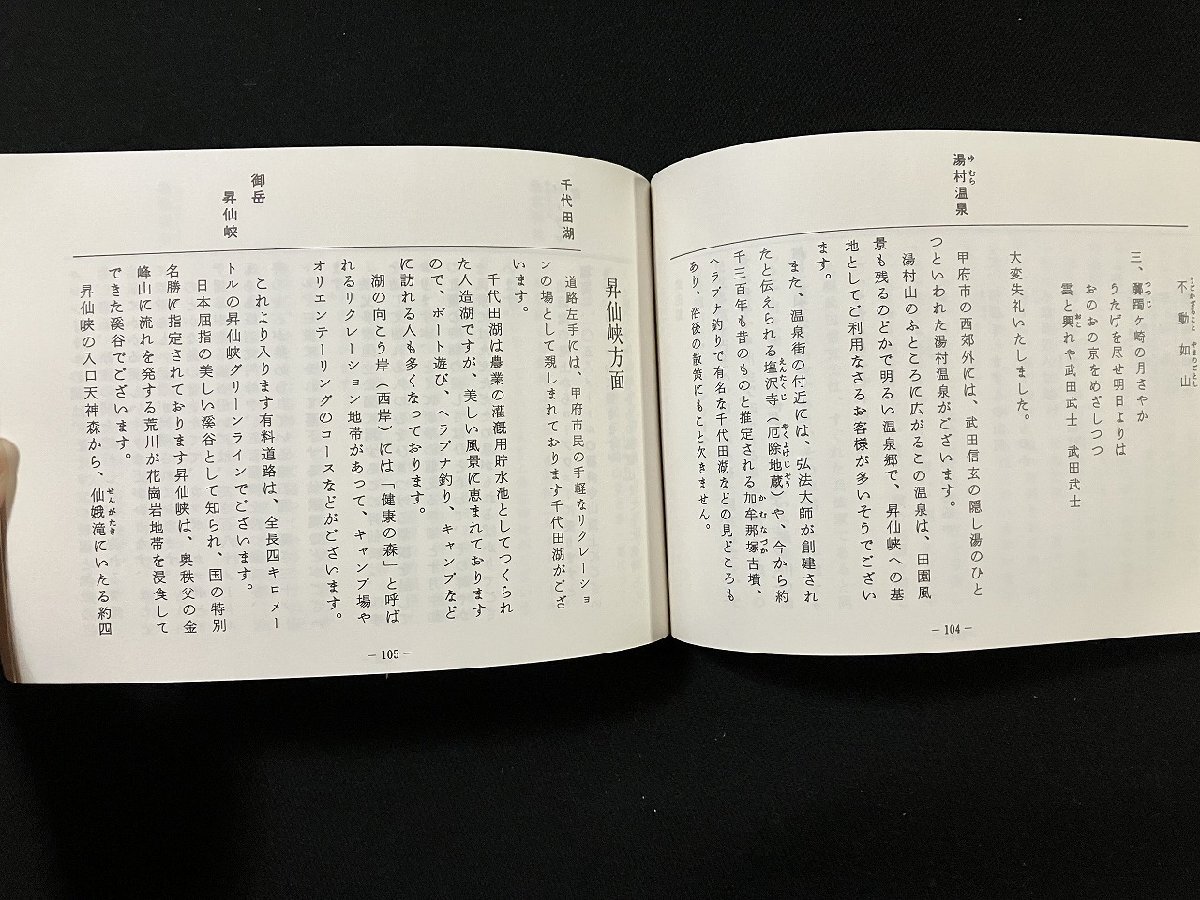 不動如山
三、躑躅ヶ崎の月さやか
うたげを尽せ明日よりは
おのおの京をめざしつつ
雲と興れや武田武士　武田武士
大変失礼いたしました。
湯村温泉
甲府市の西郊外には、武田信玄の隠し湯のひと
つといわれた湯村温泉がございます。
湯村山のふところに広がるこの温泉は、田園風
景も残るのどかで明るい温泉郷で、昇仙峡への基
地としてご利用なさるお客様が多いそうでござい
ます。
また、温泉街の付近には、弘法大師が創建され
たと伝えられる塩沢寺（厄除地蔵）や、今から約
千三百年も昔のものと推定される加牟那塚古墳、
ヘラブナ釣りで有名な千代田湖などの見どころも
あり、浴後の散策にもこと欠きません。
－104－
昇仙峡方面
千代田湖
道路左手には、甲府市民の手軽なリクレーショ
ンの場として親しまれております千代田湖がござ
います。
千代田湖は農業の灌漑用貯水池としてつくられ
た人造湖ですが、美しい風景に恵まれております
ので、ボート遊び、ヘラブナ釣り、キャンプなど
に訪れる人も多くなっております。
湖の向こう岸（西岸）には「健康の森」と呼ば
れるリクレーション地帯があって、キャンプ場や
オリエンテーリングのコースなどがございます。
御岳
昇仙峡
これより入ります有料道路は、全長四キロメー
トルの昇仙峡グリーンラインでございます。
日本屈指の美しい渓谷として知られ、国の特別
名勝に指定されております昇仙峡は、奥秩父の金
峰山に流れを発する荒川が花崗岩地帯を浸食して
できた渓谷でございます。
昇仙峡の入口天神森から、仙娥滝にいたる約四
－105－